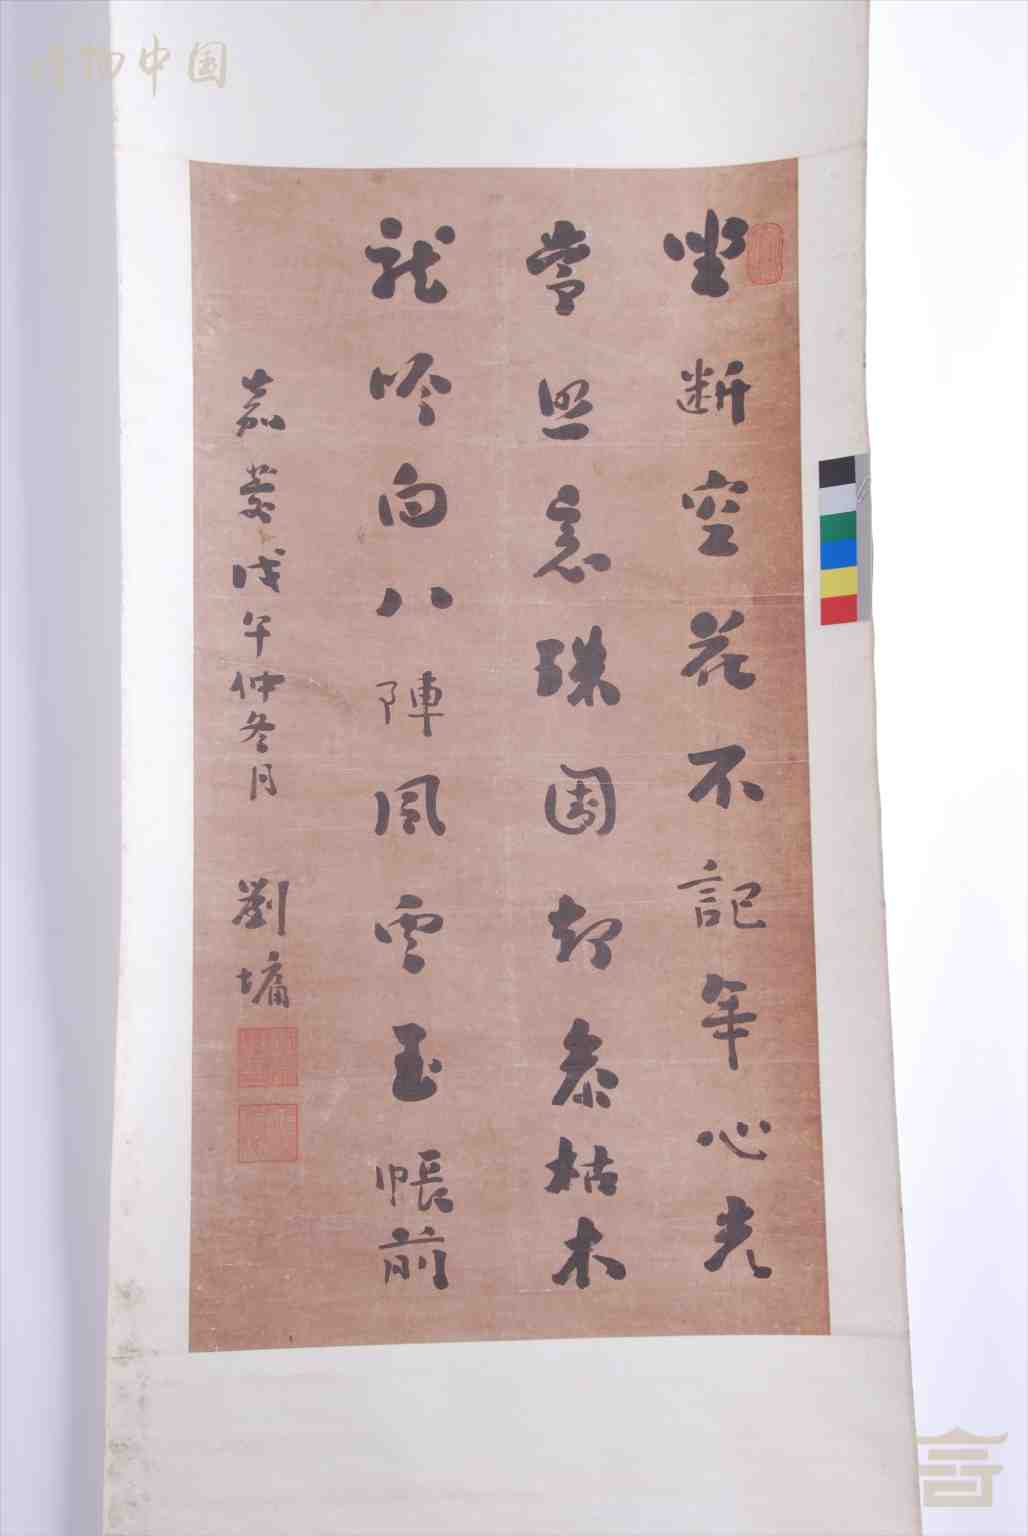 博物中国
坐断空花不記年心光
常照意珠圓却叅枯木
龍吟向八陣風雲玉帳前
嘉慶戊午仲冬月 劉墉